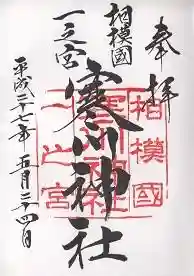 奉拝
相模國
一之宮
寒川神社
平成二十七年 五月二十四日
相模國
寒川神社
一之宮